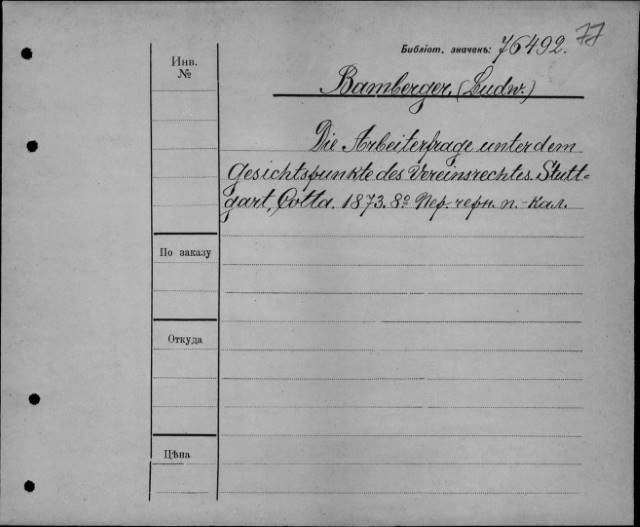 77
Библіот. значекъ: 76492.
Инв.
№
Bamberger, (Ludw.)
Die Arbeiterfrage unter dem
Gesichtspunkte des Vereinsrechtes. Stutt=
gart, Cotta. 1873. 8º Пер. черн. п.-кал.
По заказу
Откуда
Цѣна